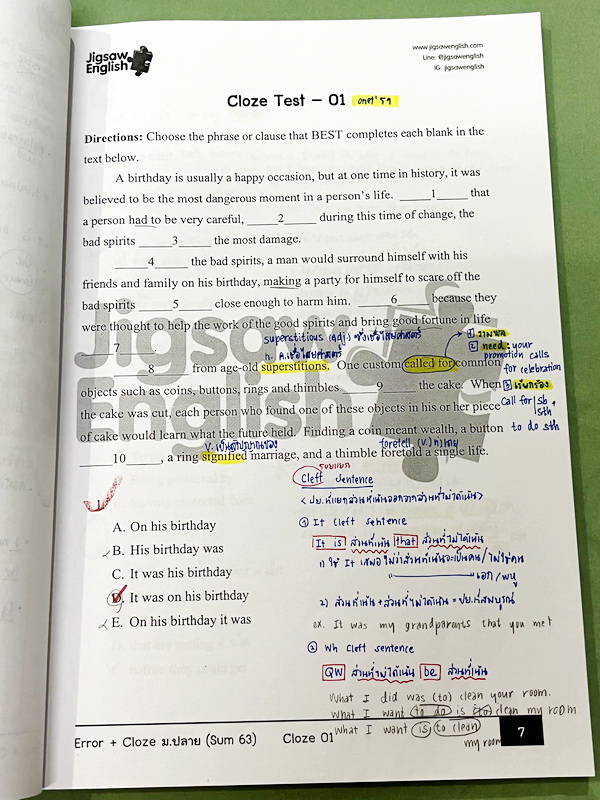 Jigsaw English
www.jigsawenglish.com
Line: @jigsawenglish
IG: jigsawenglish
Cloze Test – 01 onet' 59
Directions: Choose the phrase or clause that BEST completes each blank in the
text below.
A birthday is usually a happy occasion, but at one time in history, it was
believed to be the most dangerous moment in a person's life. _____1_____ that
a person had to be very careful, _____2_____ during this time of change, the
bad spirits _____3_____ the most damage.
_____4_____ the bad spirits, a man would surround himself with his
friends and family on his birthday, making a party for himself to scare off the
bad spirits _____5_____ close enough to harm him. _____6_____ because they
were thought to help the work of the good spirits and bring good fortune in life
superstitious (adj.) ซึ่งเชื่อไสยศาสตร์
① วางผล
_____7_____.
n. ค.เชื่อไสยศาสตร์
② need : your
promotion calls
for celebration
_____8_____ from age-old superstitions. One custom called for common
objects such as coins, buttons, rings and thimbles _____9_____ the cake. When
③ เรียกร้อง
the cake was cut, each person who found one of these objects in his or her piece
call for/sb +
sth
to do sth
of cake would learn what the future held. Finding a coin meant wealth, a button
foretell (v.) ทำนาย
_____10_____, a ring signified marriage, and a thimble foretold a single life.
Cleft Sentence
< ปย.ที่แยกส่วนที่เน้นออกจากส่วนที่ไม่ได้เน้น >
① It cleft sentence
It is ส่วนที่เน้น that ส่วนที่ไม่ได้เน้น
1) ใช้ It เสมอ ไม่ว่าส่วนที่เน้นจะเป็นคน/ไม่ใช่คน
เอก/พหู
2) ส่วนที่เน้น + ส่วนที่ไม่ได้เน้น = ปย.ที่สมบูรณ์
ex. It was my grandparents that you met
② Wh cleft sentence
QW ส่วนที่ไม่ได้เน้น be ส่วนที่เน้น
What I did was (to) clean your room.
What I want to do is (to) clean my room
What I want is to clean
my room
A. On his birthday
B. His birthday was
C. It was his birthday
D. It was on his birthday
E. On his birthday it was
Error + Cloze ม.ปลาย (Sum 63) Cloze 01 7